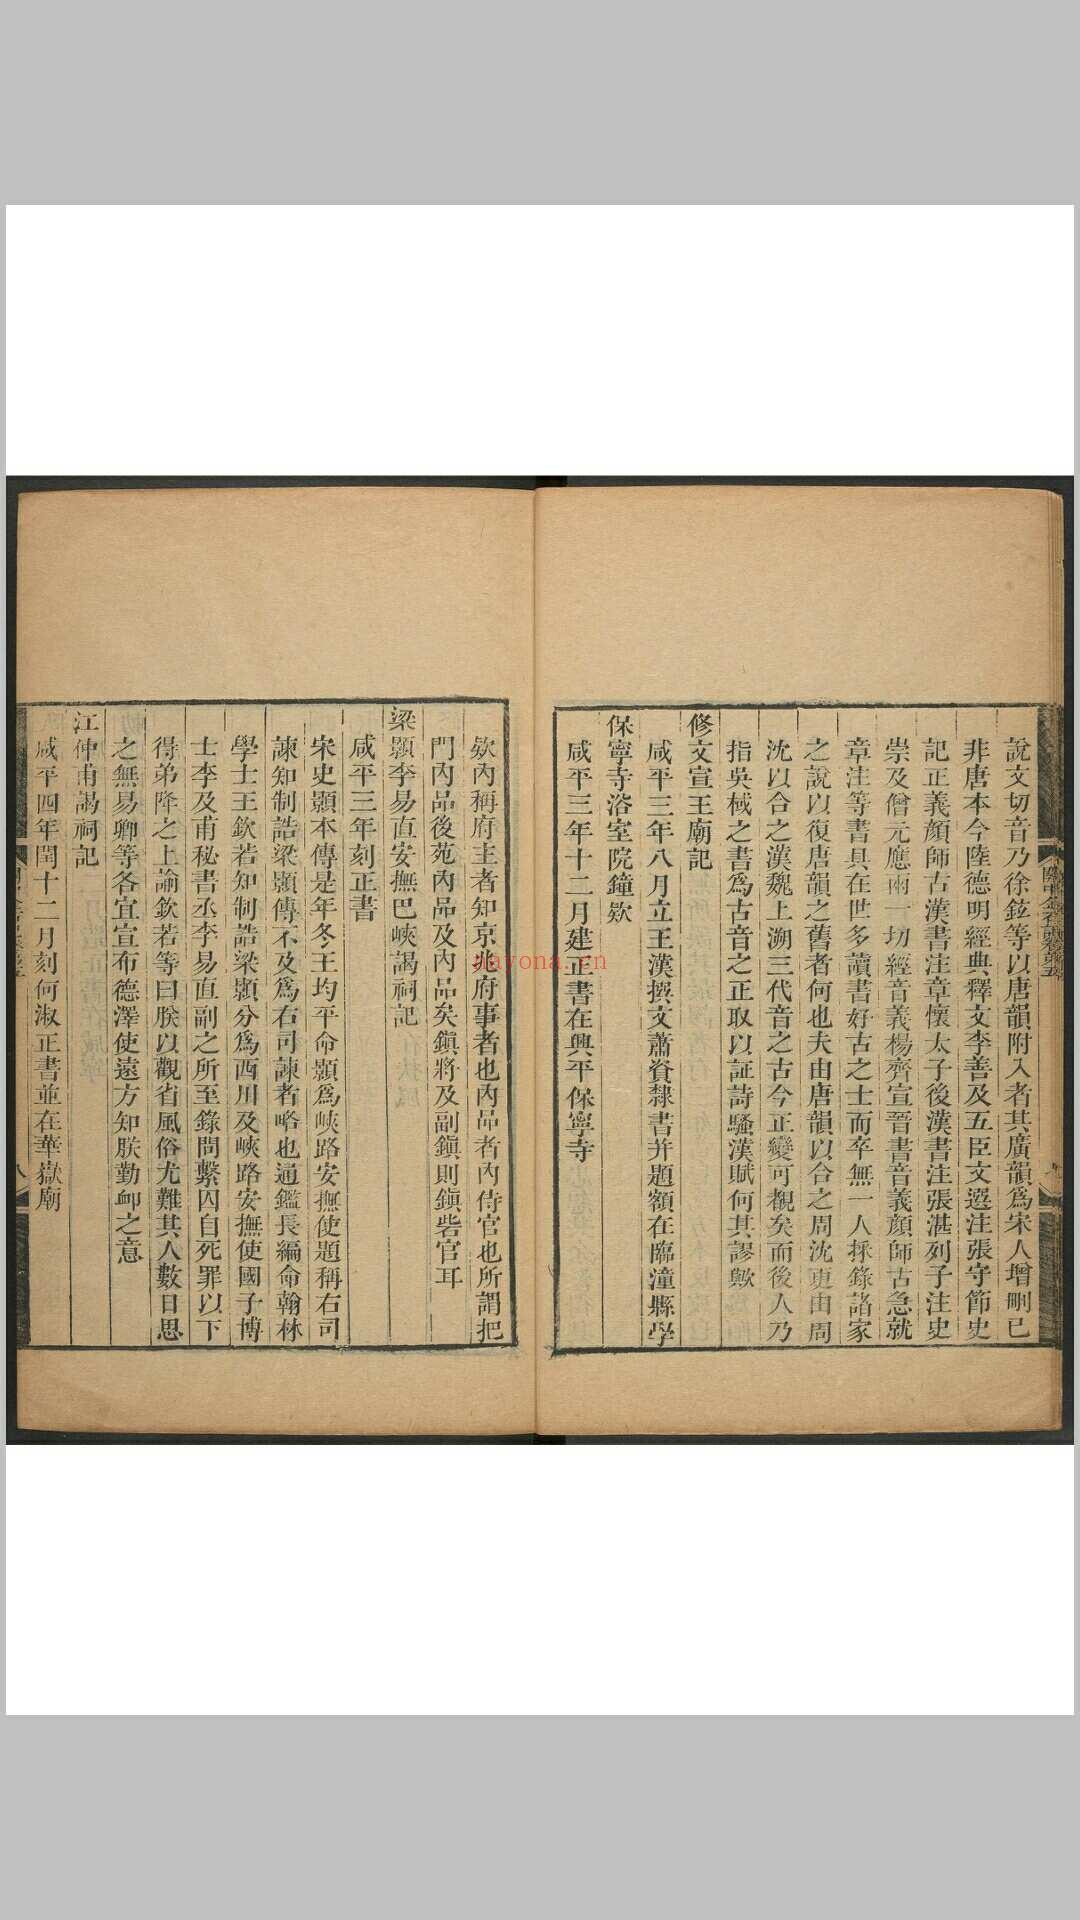 說文切音乃徐鉉等以唐韻附入者其廣韻爲宋人增刪已
非唐本今陸德明經典釋文李善及五臣文選注張守節史
記正義顏師古漢書注章懷太子後漢書注張湛列子注史
崇及僧元應兩一切經音義楊齊宣晉書音義顏師古急就
章注等書具在世多讀書好古之士而卒無一人採錄諸家
之說以復唐韻之舊者何也夫由唐韻以合之周沈更由周
沈以合之漢魏上溯三代音之古今正變可覩矣而後人乃
指吳棫之書爲古音之正取以証詩騷漢賦何其謬歟
修文宣王廟記
咸平三年八月立王漢撰文蕭資隸書并題額在臨潼縣學
保寧寺浴室院鐘欵
咸平三年十二月建正書在興平保寧寺
欵內稱府主者知京兆府事者也內品者內侍官也所謂把
門內品後苑內品及內品矣鎭將及副鎭則鎭砦官耳
梁顥李易直安撫巴峽謁祠記
咸平三年刻正書
宋史顥本傳是年冬王均平命顥爲峽路安撫使題稱右司
諫知制誥梁顥傳不及爲右司諫者略也通鑑長編命翰林
學士王欽若知制誥梁顥分爲西川及峽路安撫使國子博
士李及甫秘書丞李易直副之所至錄問繫囚自死罪以下
得弟降之上諭欽若等曰朕以觀省風俗尤難其人數日思
之無易卿等各宜宣布德澤使遠方知朕勤卹之意
江仲甫謁祠記
咸平四年閏十二月刻何淑正書並在華嶽廟
八
nayona.cn